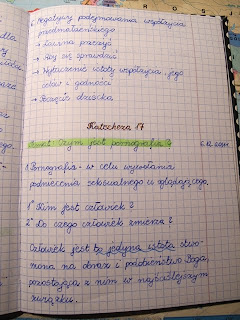 6. Negatywy podejmowania współżycia
przedmałżeńskiego
→ Łaczna
→ Aby się sprawdzić
→ Wypaczenie istoty współżycia, jego
celów i godności
→ Poczęcie dziecka
Katecheza 17
Temat: Czym jest pornografia?
1. Pornografia - w celu wywołania
podniecenia seksualnego u oglądającego.
1° Kim jest człowiek?
2° Do czego człowiek zmierza?
Człowiek jest to jedyna istota stwo-
rzona na obraz i podobieństwo Boga
pozostająca z nim w najściślejszym
związku.